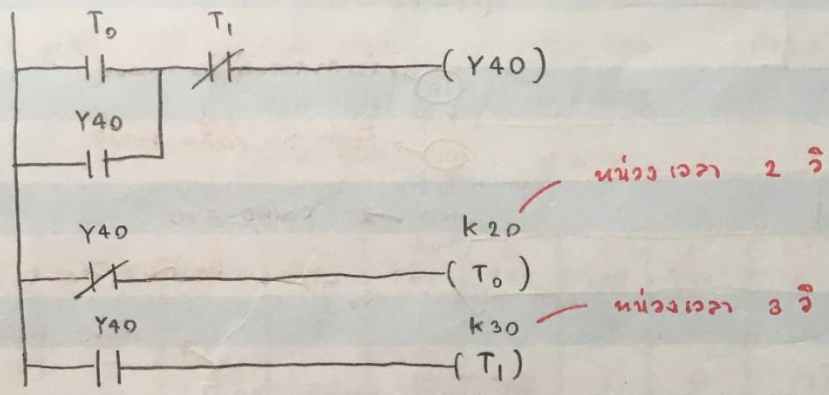 T₀ T₁
( Y40 )
Y40
หน่วงเวลา 2 วิ
Y40 K20
( T₀ )
หน่วงเวลา 3 วิ
Y40 K30
( T₁ )